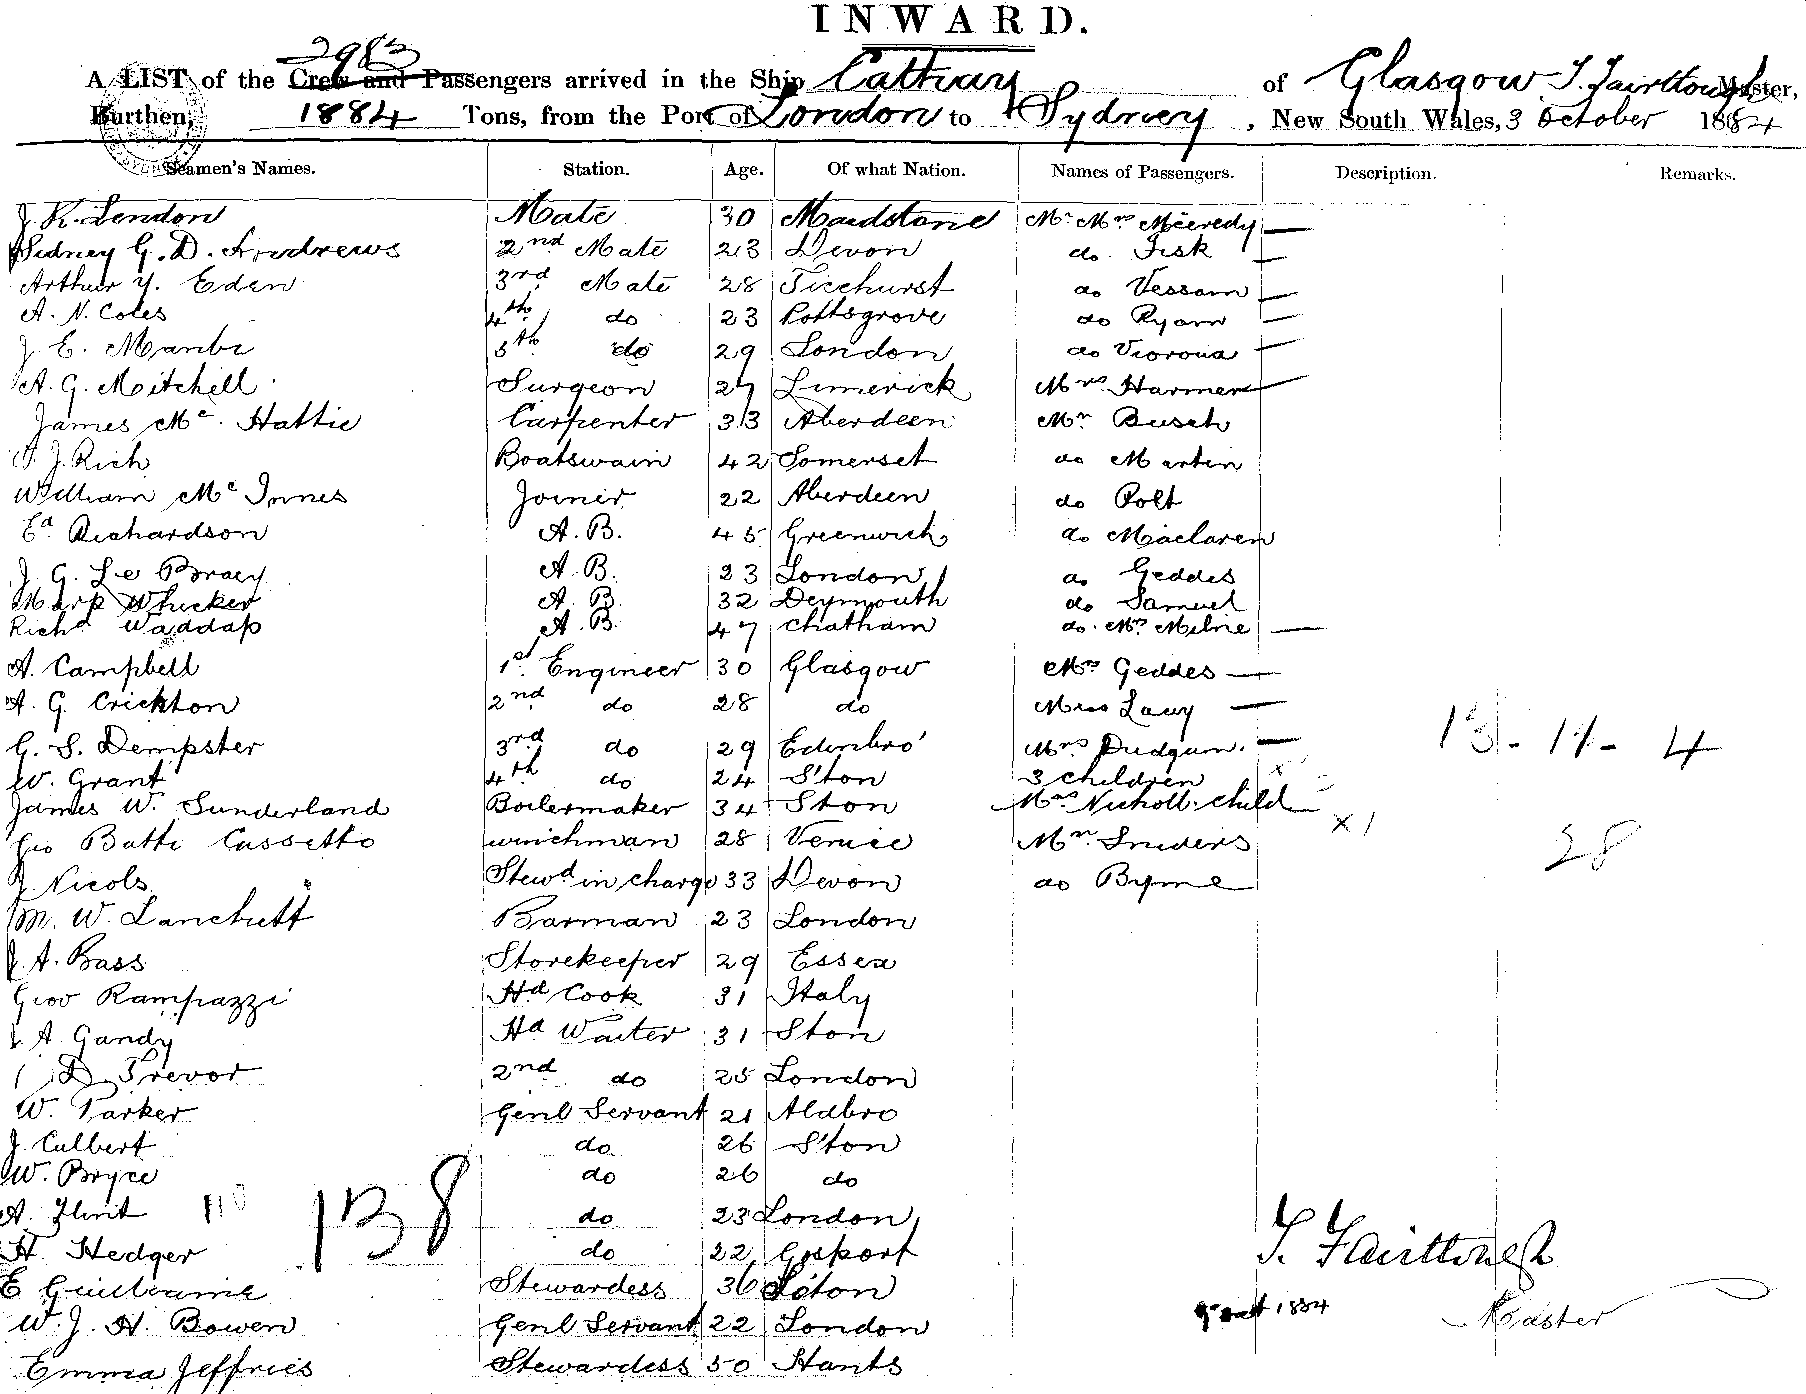 INWARD.
2983
A LIST of the Crew and Passengers arrived in the Ship Cathay of Glasgow T. Fairtlough Master,
Burthen, 1884 Tons, from the Port of London to Sydney, New South Wales, 3 October 1884
Seamen's Names. Station. Age. Of what Nation. Names of Passengers. Description. Remarks.
J. K. Lendon Mate 30 Maidstone Mr Mrs
Sidney G. D. Andrews 2nd Mate 23 Devon do Fisk
Arthur Y. Eden 3rd Mate 28 Ticehurst do Vessam
A. N. Coles 4th do 23 Pottsgrove do Ryan
J. E. 5th do 29 London do
A. G. Mitchell Surgeon 27 Limerick Mrs Harmer
James Mc Hattie Carpenter 33 Aberdeen Mr Busch
J. Rich Boatswain 42 Somerset do Martin
William Mc Innes Joiner 22 Aberdeen do Polt
Ed Richardson A.B. 45 Greenwich do Maclaren
J. G. Le A.B. 23 London do Geddes
Mark Whicker A.B. 32 do Samuel
Richd Waddap A.B. 47 Chatham do. Mrs Milne
A. Campbell 1st Engineer 30 Glasgow Mrs Geddes
A. G. Crickton 2nd do 28 do Miss
G. S. Dempster 3rd do 29 Edinbro' Mrs Pudgum.
W. Grant 4th do 24 S'ton 3 children
James W. Sunderland Boilermaker 34 Ston Mrs Nicholl. child
Gio Batti Cassetto winchman 28 Venice Mr Sniders
J. Nicols Stewd in charge 33 Devon do Byrne
M. W. Barman 23 London
J. A. Bass Storekeeper 29 Essex
Giov Rampazzi Hd Cook 31 Italy
A. Gandy Hd Waiter 31 Ston
D. Trevor 2nd do 25 London
W. Parker Genl Servant 21 Aldbro
J. Culbert do 26 S'ton
W. Bryce do 26 do
A. Flint do 23 London
H. Hedger do 22 Gosport
E Guillaume Stewardess 36 Ston
W. J. H. Bowen Genl Servant 22 London
Emma Jeffries Stewardess 50 Hants
28
138
T. Fairtlough
1884 Master